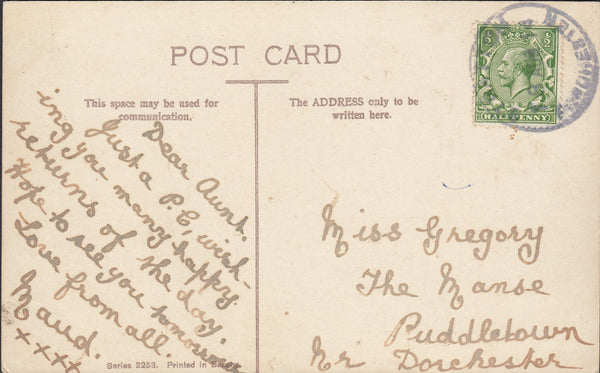 POST CARD
This space may be used for
communication.
The ADDRESS only to be
written here.
HALFPENNY
Dear Aunt.
Just a P.C, wish-
ing you many happy
returns of the day.
Hope to see you tomorrow
Love from all.
Maud.
x x x x
Miss Gregory
The Manse
Puddletown
Nr Dorchester
Series 2253. Printed in Saxony.